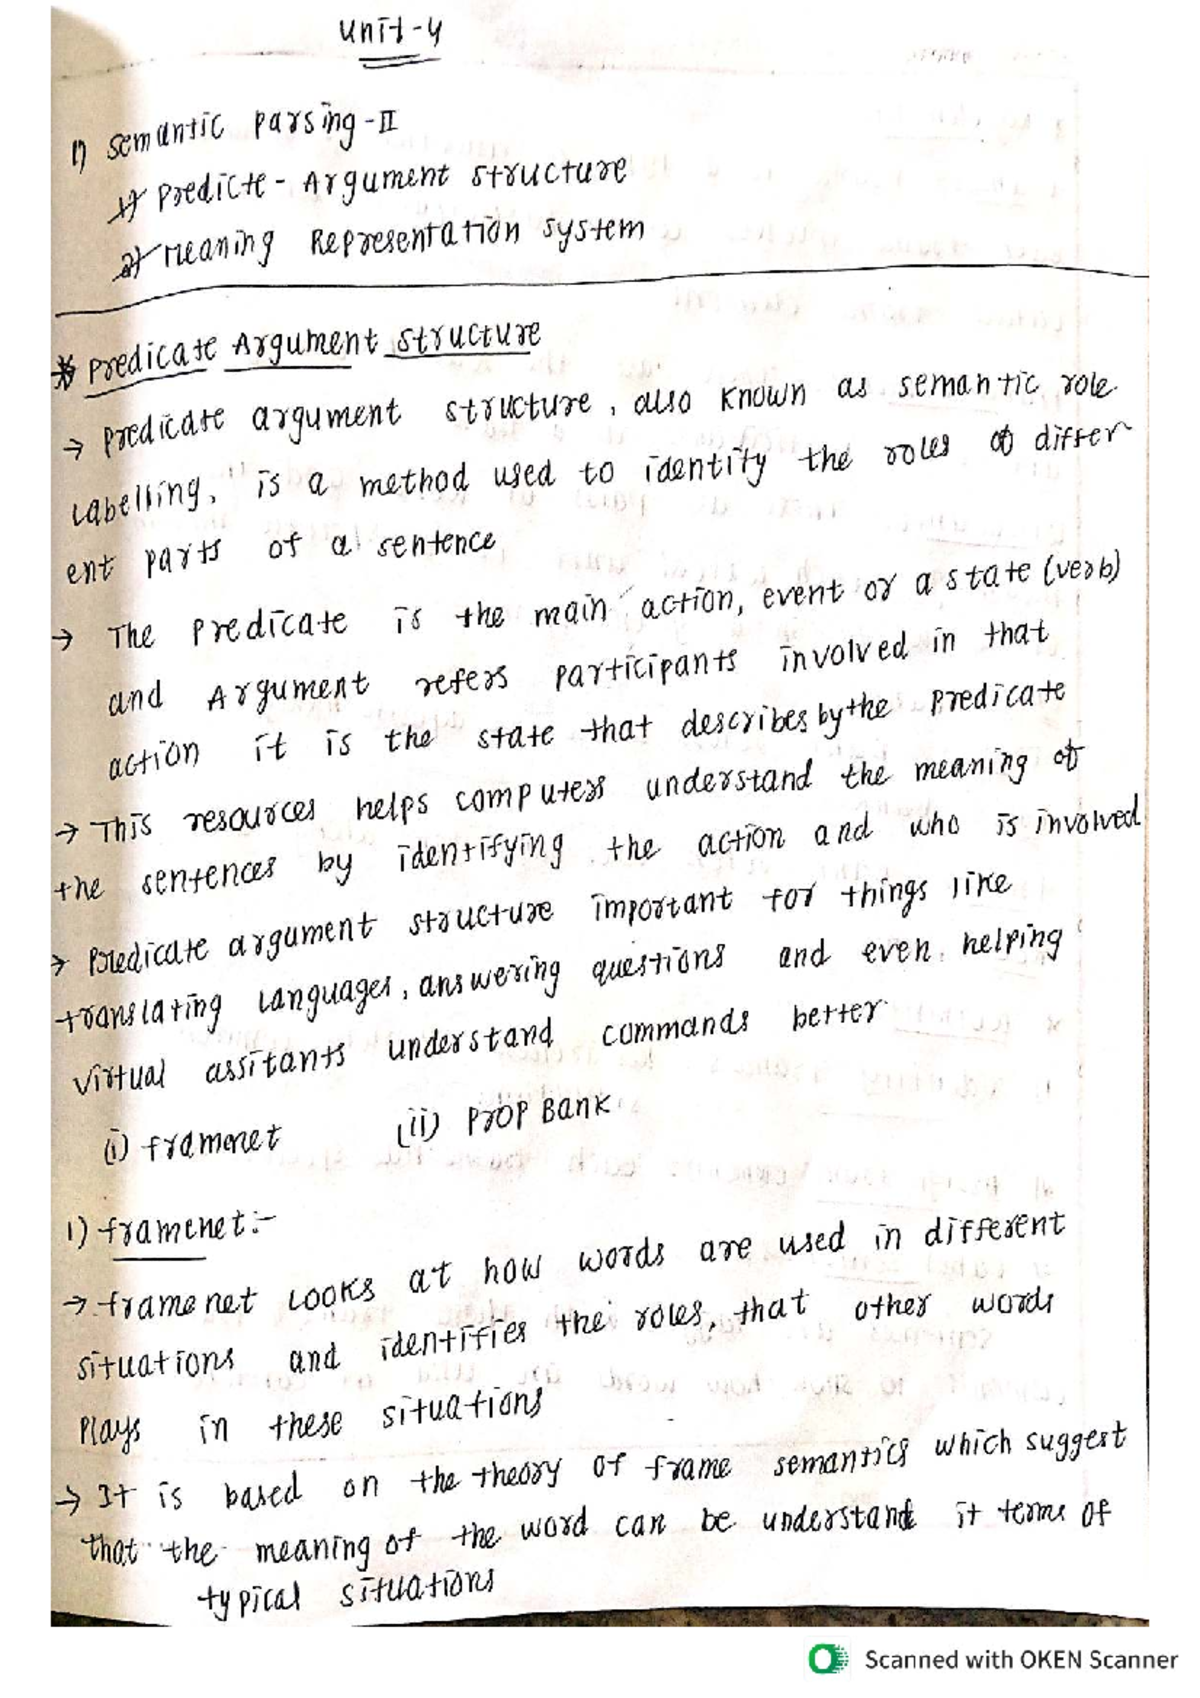 Unit-4
1) Semantic Parsing-II
1) Predicte-Argument structure
2) Meaning Representation system
* Predicate Argument Structure
→ Predicate argument structure, also known as semantic role
Labelling, is a method used to identity the roles of differ
ent parts of a sentence
→ The predicate is the main action, event or a state (verb)
and Argument refers participants involved in that
action it is the state that describes by the predicate
→ This resources helps computers understand the meaning of
the sentences by identifying the action and who is involved
→ Predicate argument structure important for things like
translating languages, answering questions and even helping
virtual assitants understand commands better
(i) framenet (ii) Prop Bank
1) framenet:-
→ framenet Looks at how words are used in different
situations and identifies the roles, that other words
Plays in these situations
→ It is based on the theory of frame semantics which suggest
that the meaning of the word can be understand it terms of
typical situations
Scanned with OKEN Scanner